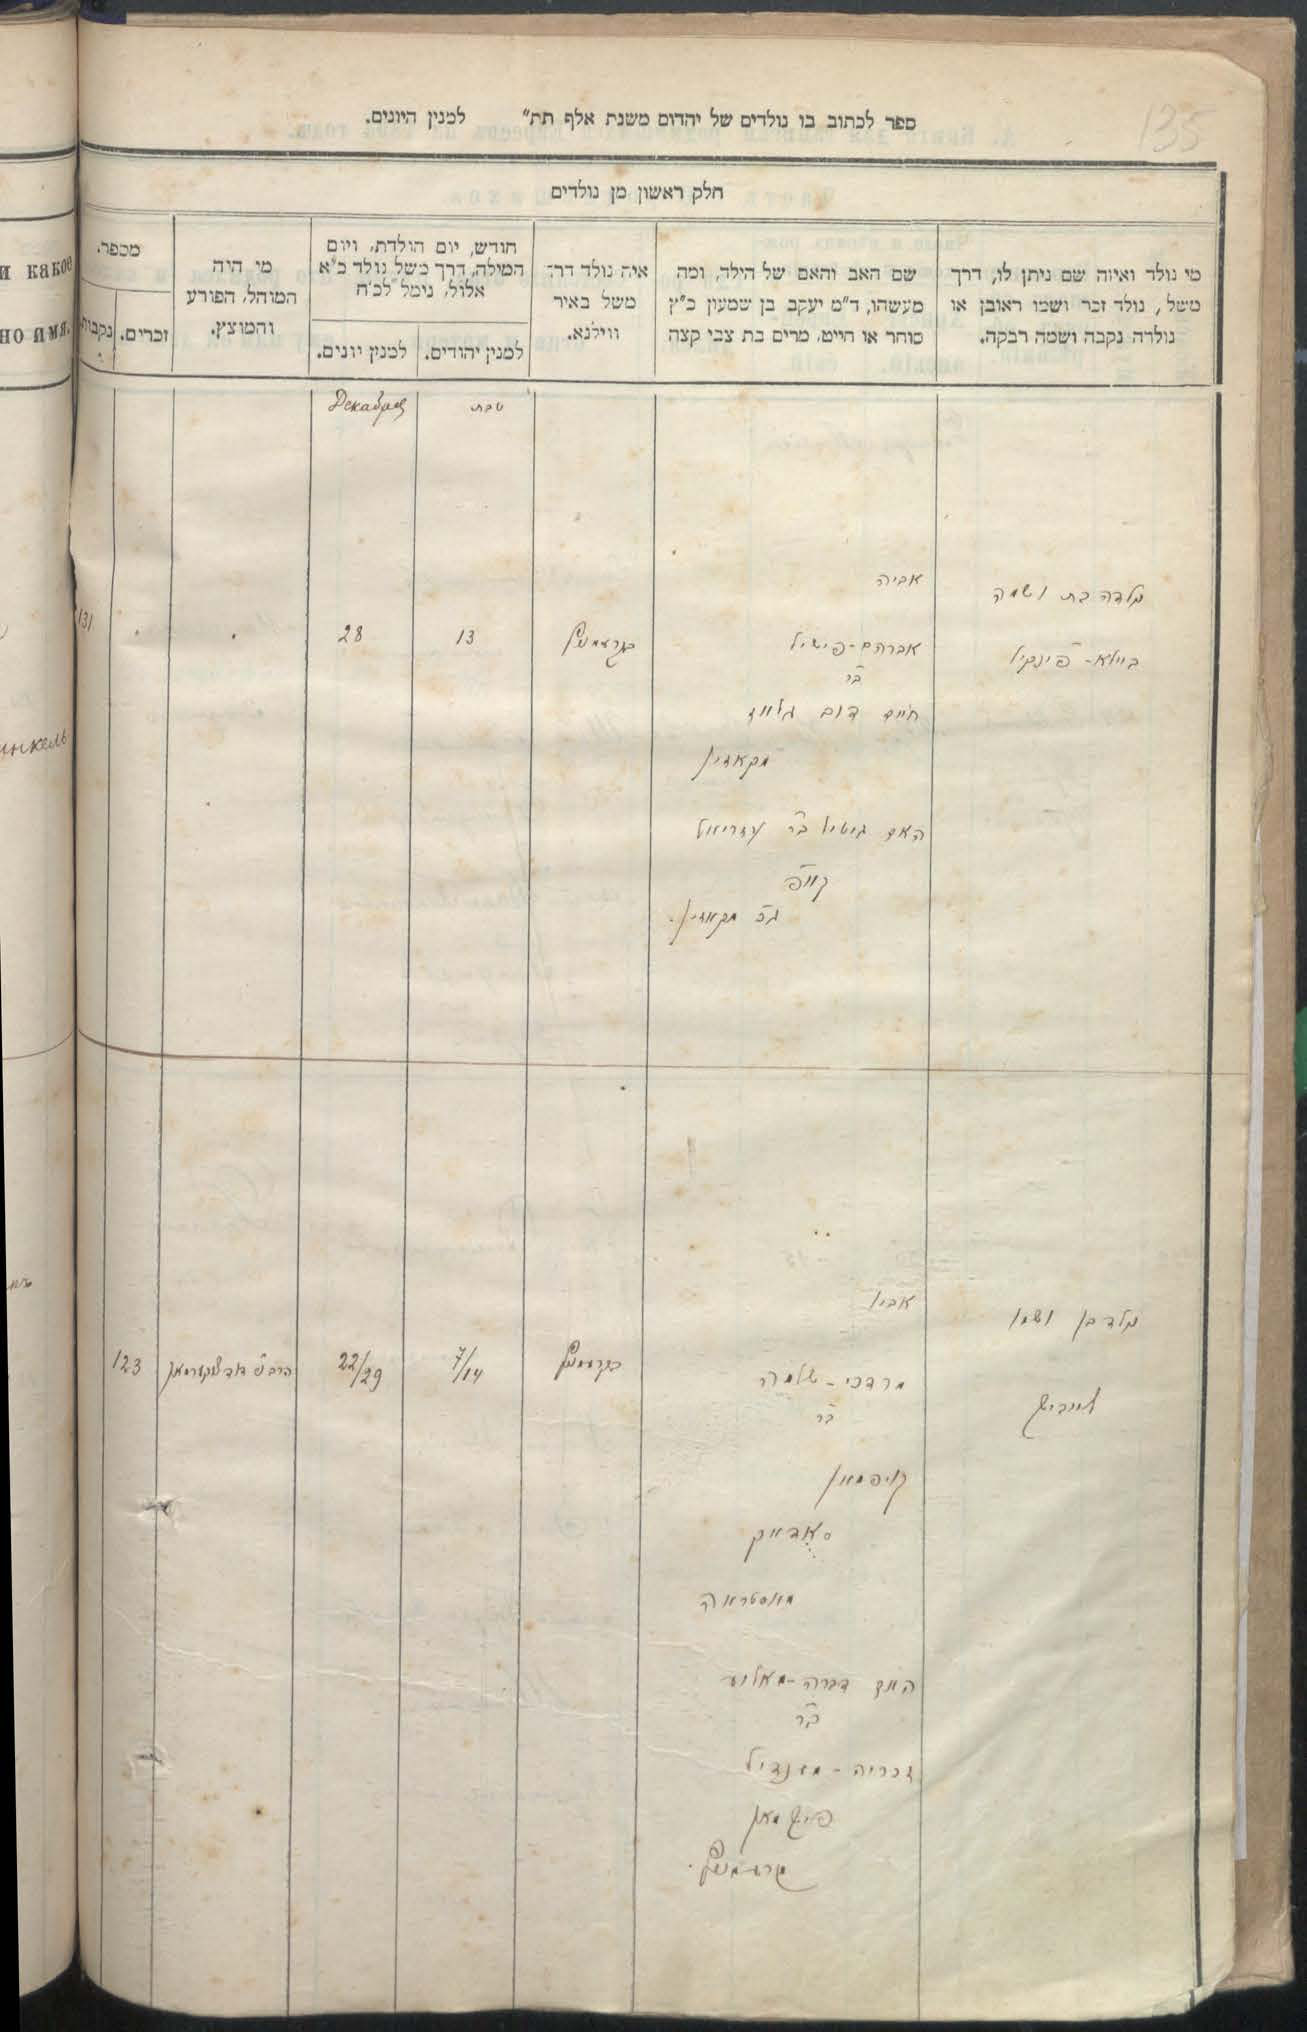 135
ספר לכתוב בו נולדים של יהדום משנת אלף תת״ למנין היונים.
חלק ראשון מן נולדים
מי נולד ואיזה שם ניתן לו, דרך
משל, נולד זכר ושמו ראובן או
נולדה נקבה ושמה רבקה.
שם האב והאם של הילד, ומה
מעשהו, ד״מ יעקב בן שמעון כ״ץ
סוחר או חייט, מרים בת צבי קצה
איה נולד דרך
משל באיר
ווילנא.
חודש, יום הולדת, ויום
המילה, דרך משל נולד כ״א
אלול, נימל לכ״ח
למנין יהודים.
למנין יונים.
מי היה
המוהל, הפורע
והמוצץ.
מספר.
זכרים.
נקבות.
и какое
но имя.
טבת
Декабрь
ילדה בת ושמה
ביילא-פינקיל
אביה
אברהם-פישיל
בר
חיים
האם גיטיל בר עזריאל
13
28
131
инкель
ילד בן ושמו
לייביש
אביו
מרדכי-שלמה
בר
קויפמאן
האם דברה-מאליע
בר
זכריה-מענדיל
פישמאן
קרעמניץ
בקרעמניץ
7/14
22/29
123